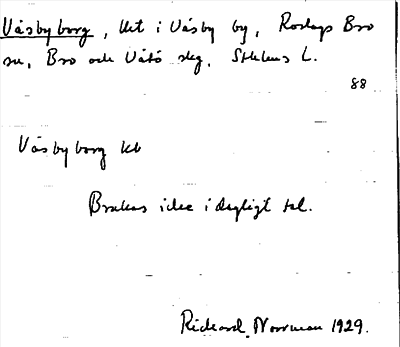 Väsbyborg, lht i Väsby by, Roslags Bro
sn, Bro och Vätö skg, Sthlms L.
88
Väsbyborg lht
Brukas icke i dagligt tal.
Rickard Norrman 1929.